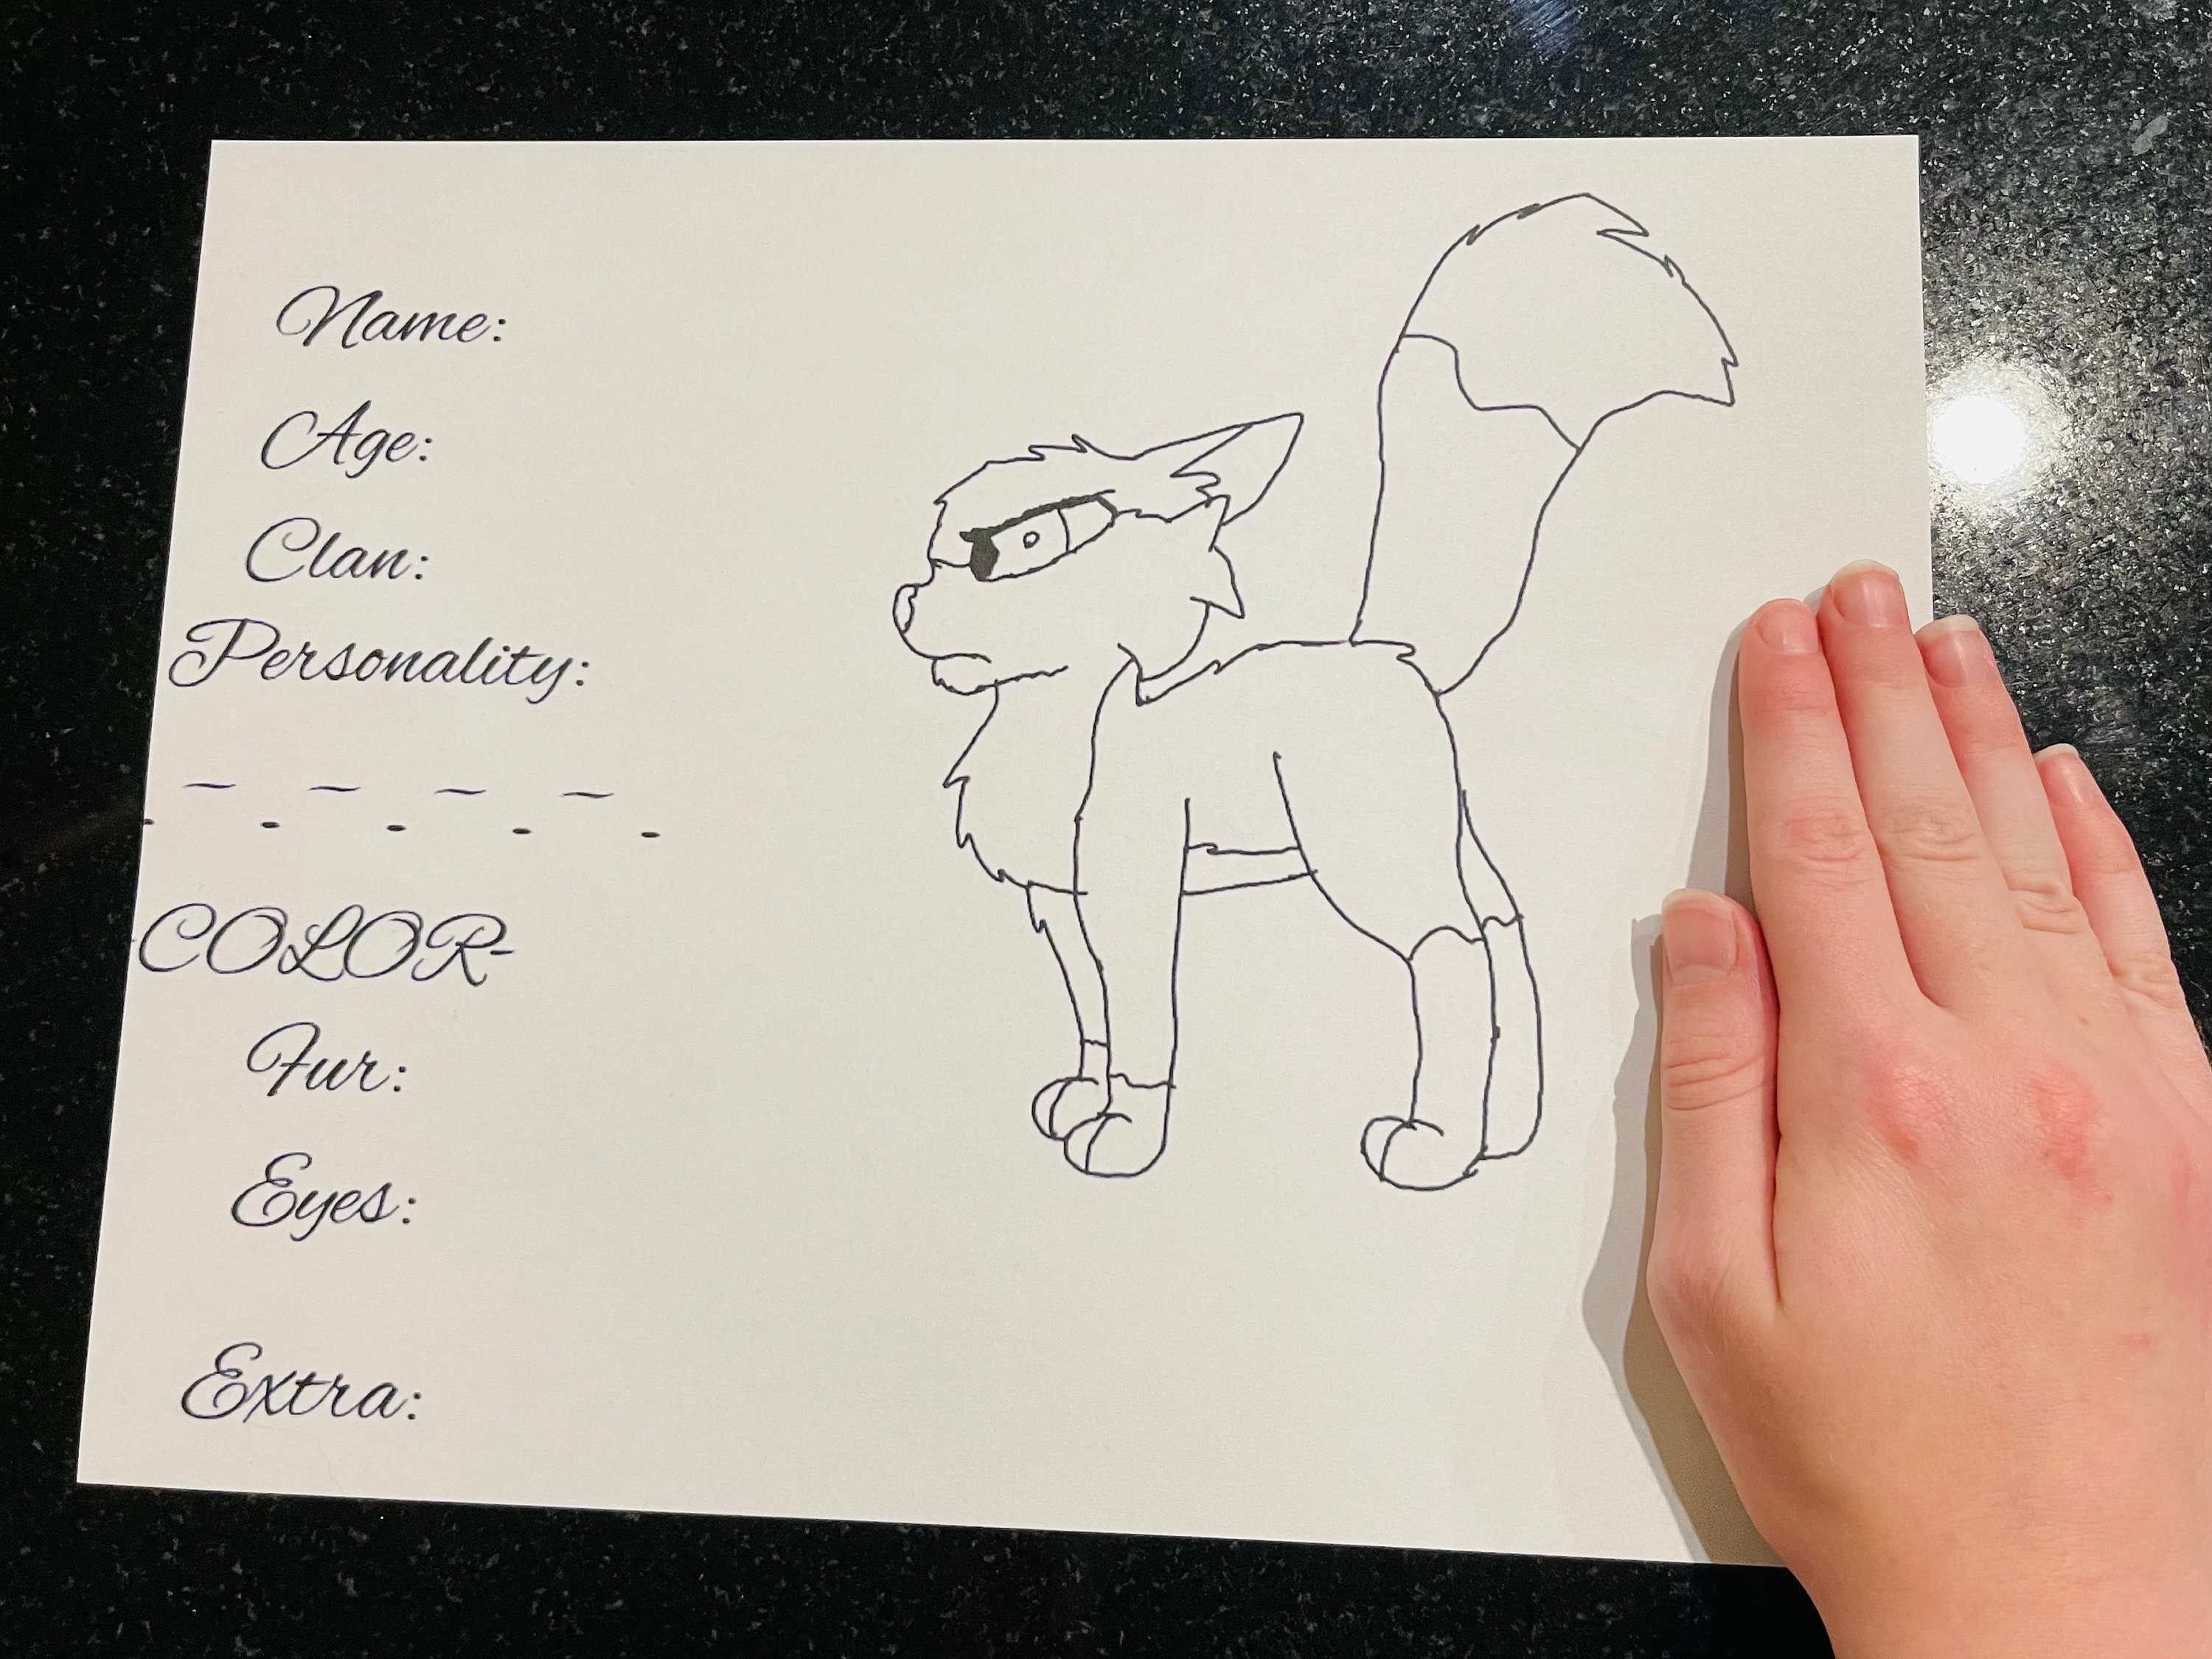 Name:
Age:
Clan:
Personality:
COLOR-
Fur:
Eyes:
Extra: